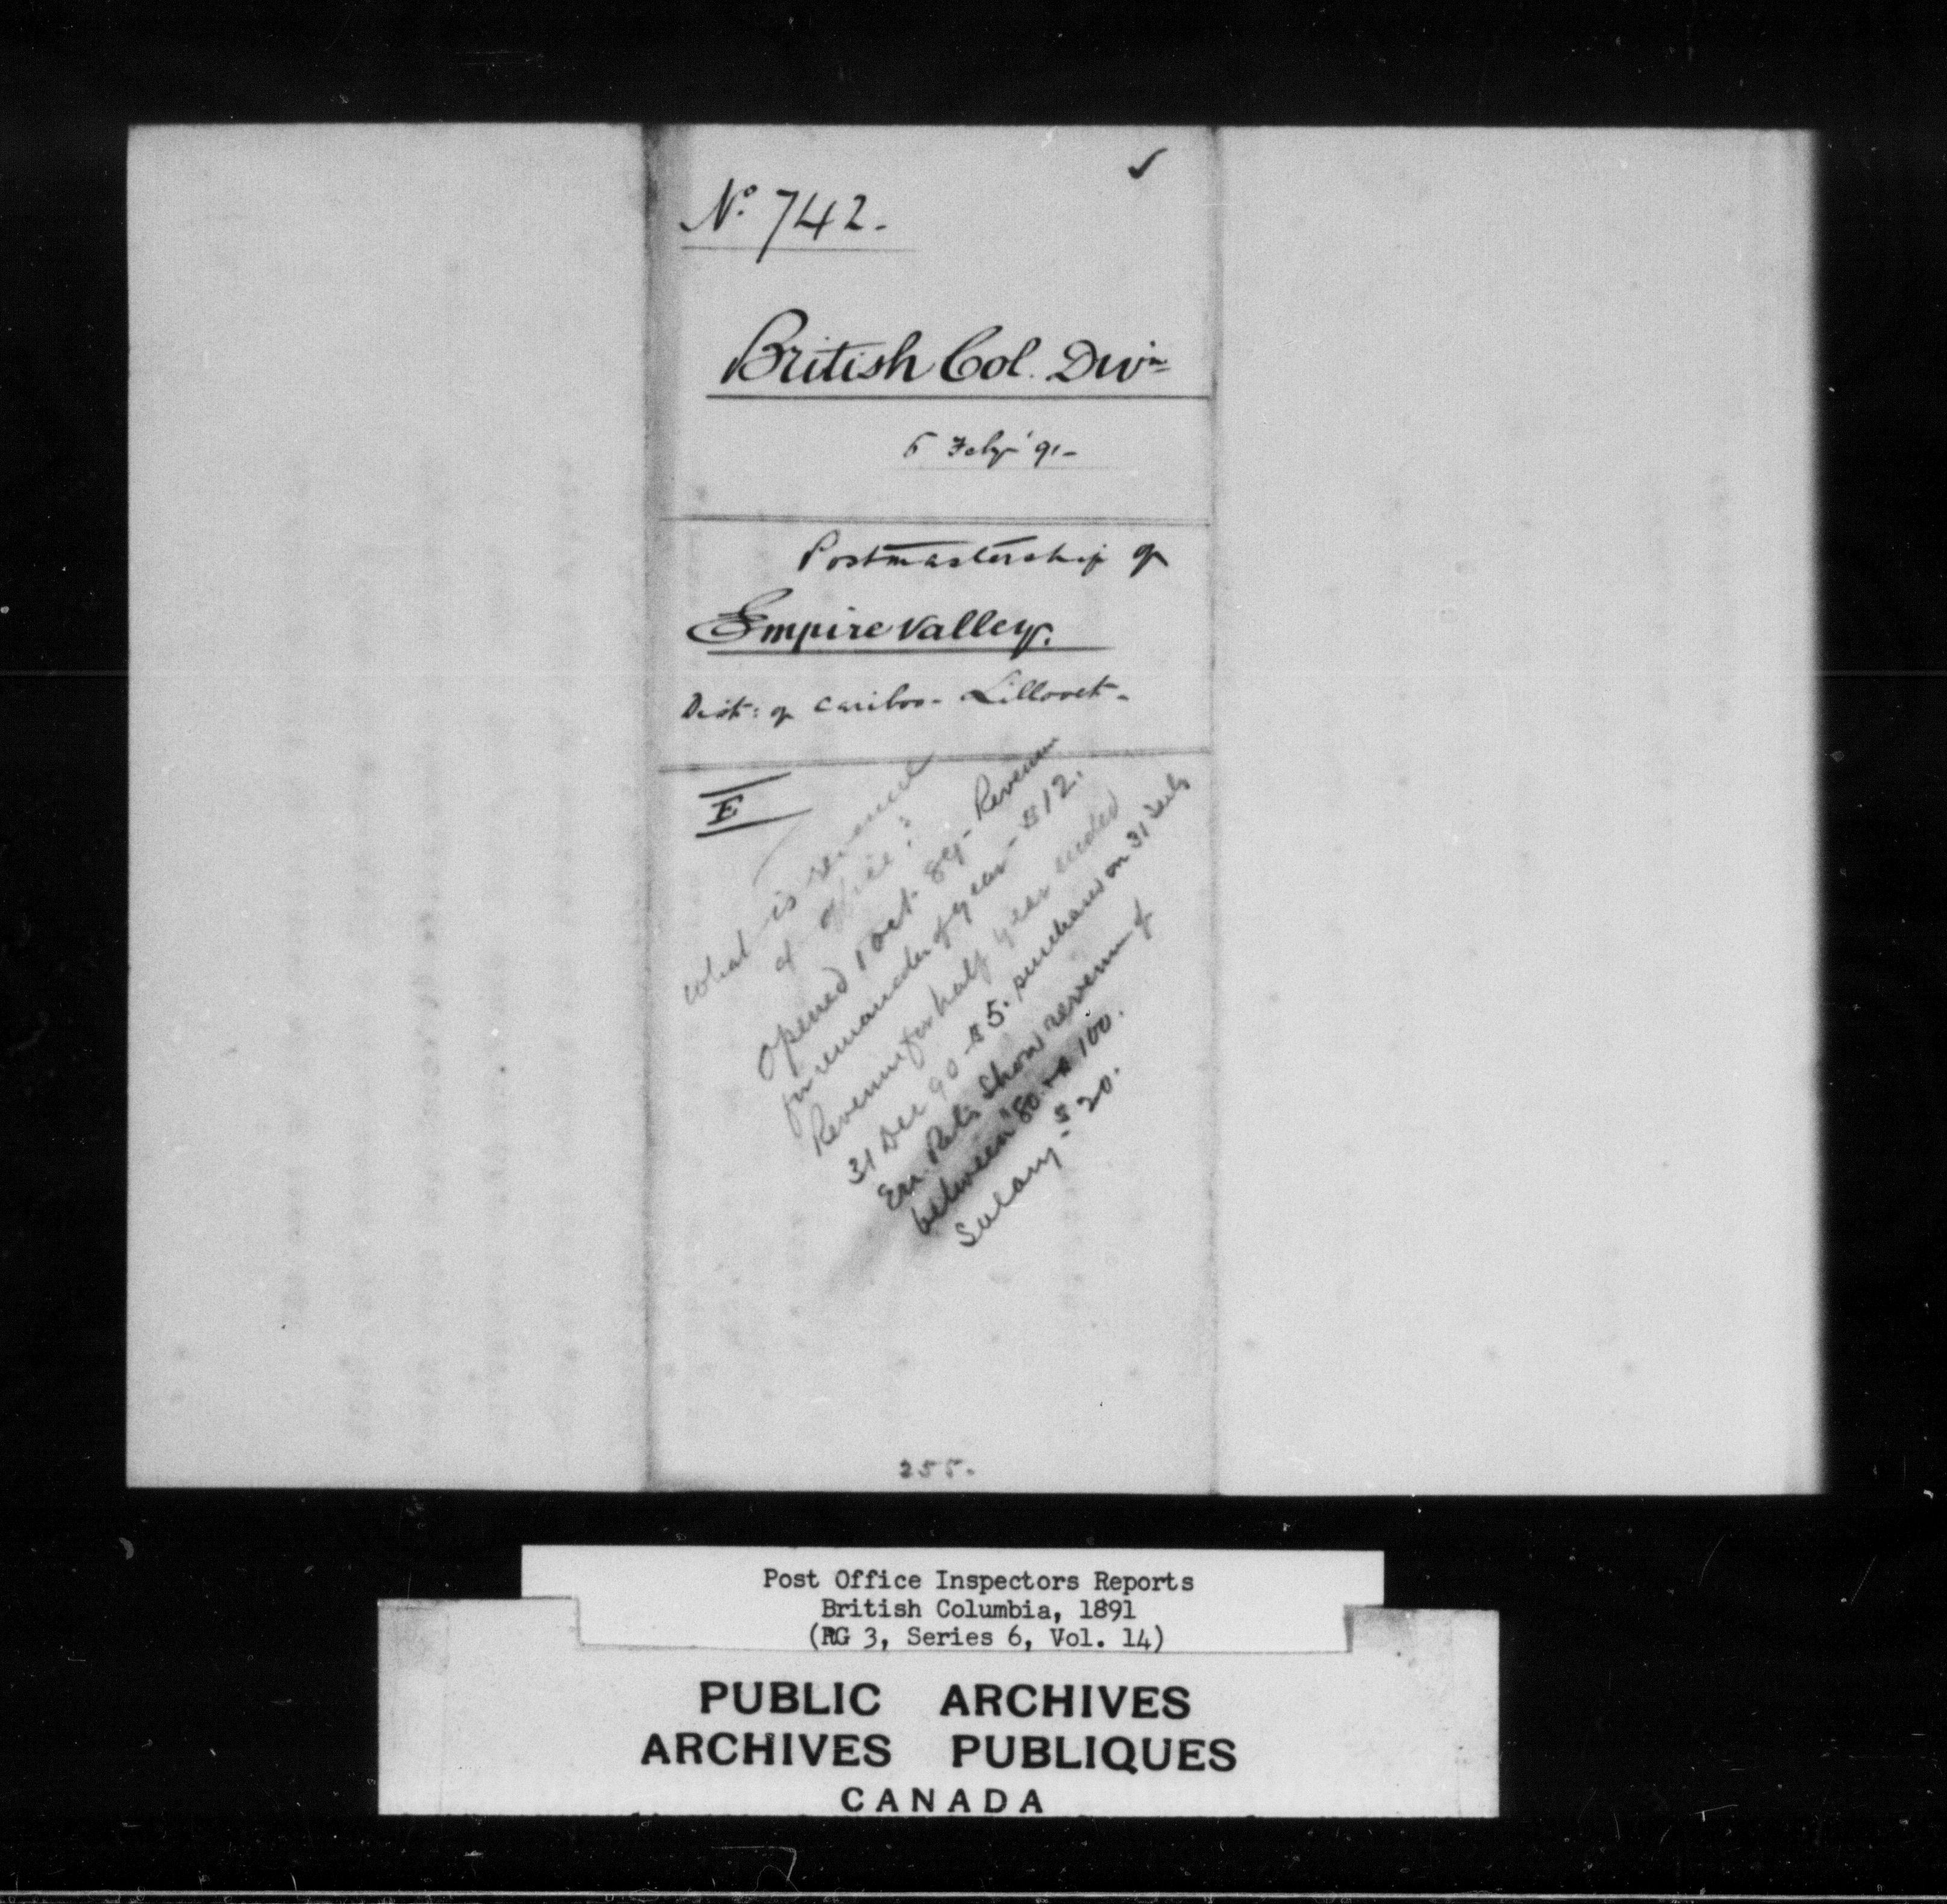 No. 742.
British Col. Divn
5 Feby '91-
Postmastership of
Empire Valley.
Dist: of Cariboo- Lillooet-
E
What is revenue
of office?
Opened 1 Oct 89- Revenue
for remainder of year- $12.
Revenue for half year ended
31 Dec 90 - $5. purchased on 31
Rets Show revenue of
between $80 & $100.
Salary- $20.
255.
Post Office Inspectors Reports
British Columbia, 1891
(RG 3, Series 6, Vol. 14)
PUBLIC ARCHIVES
ARCHIVES PUBLIQUES
CANADA